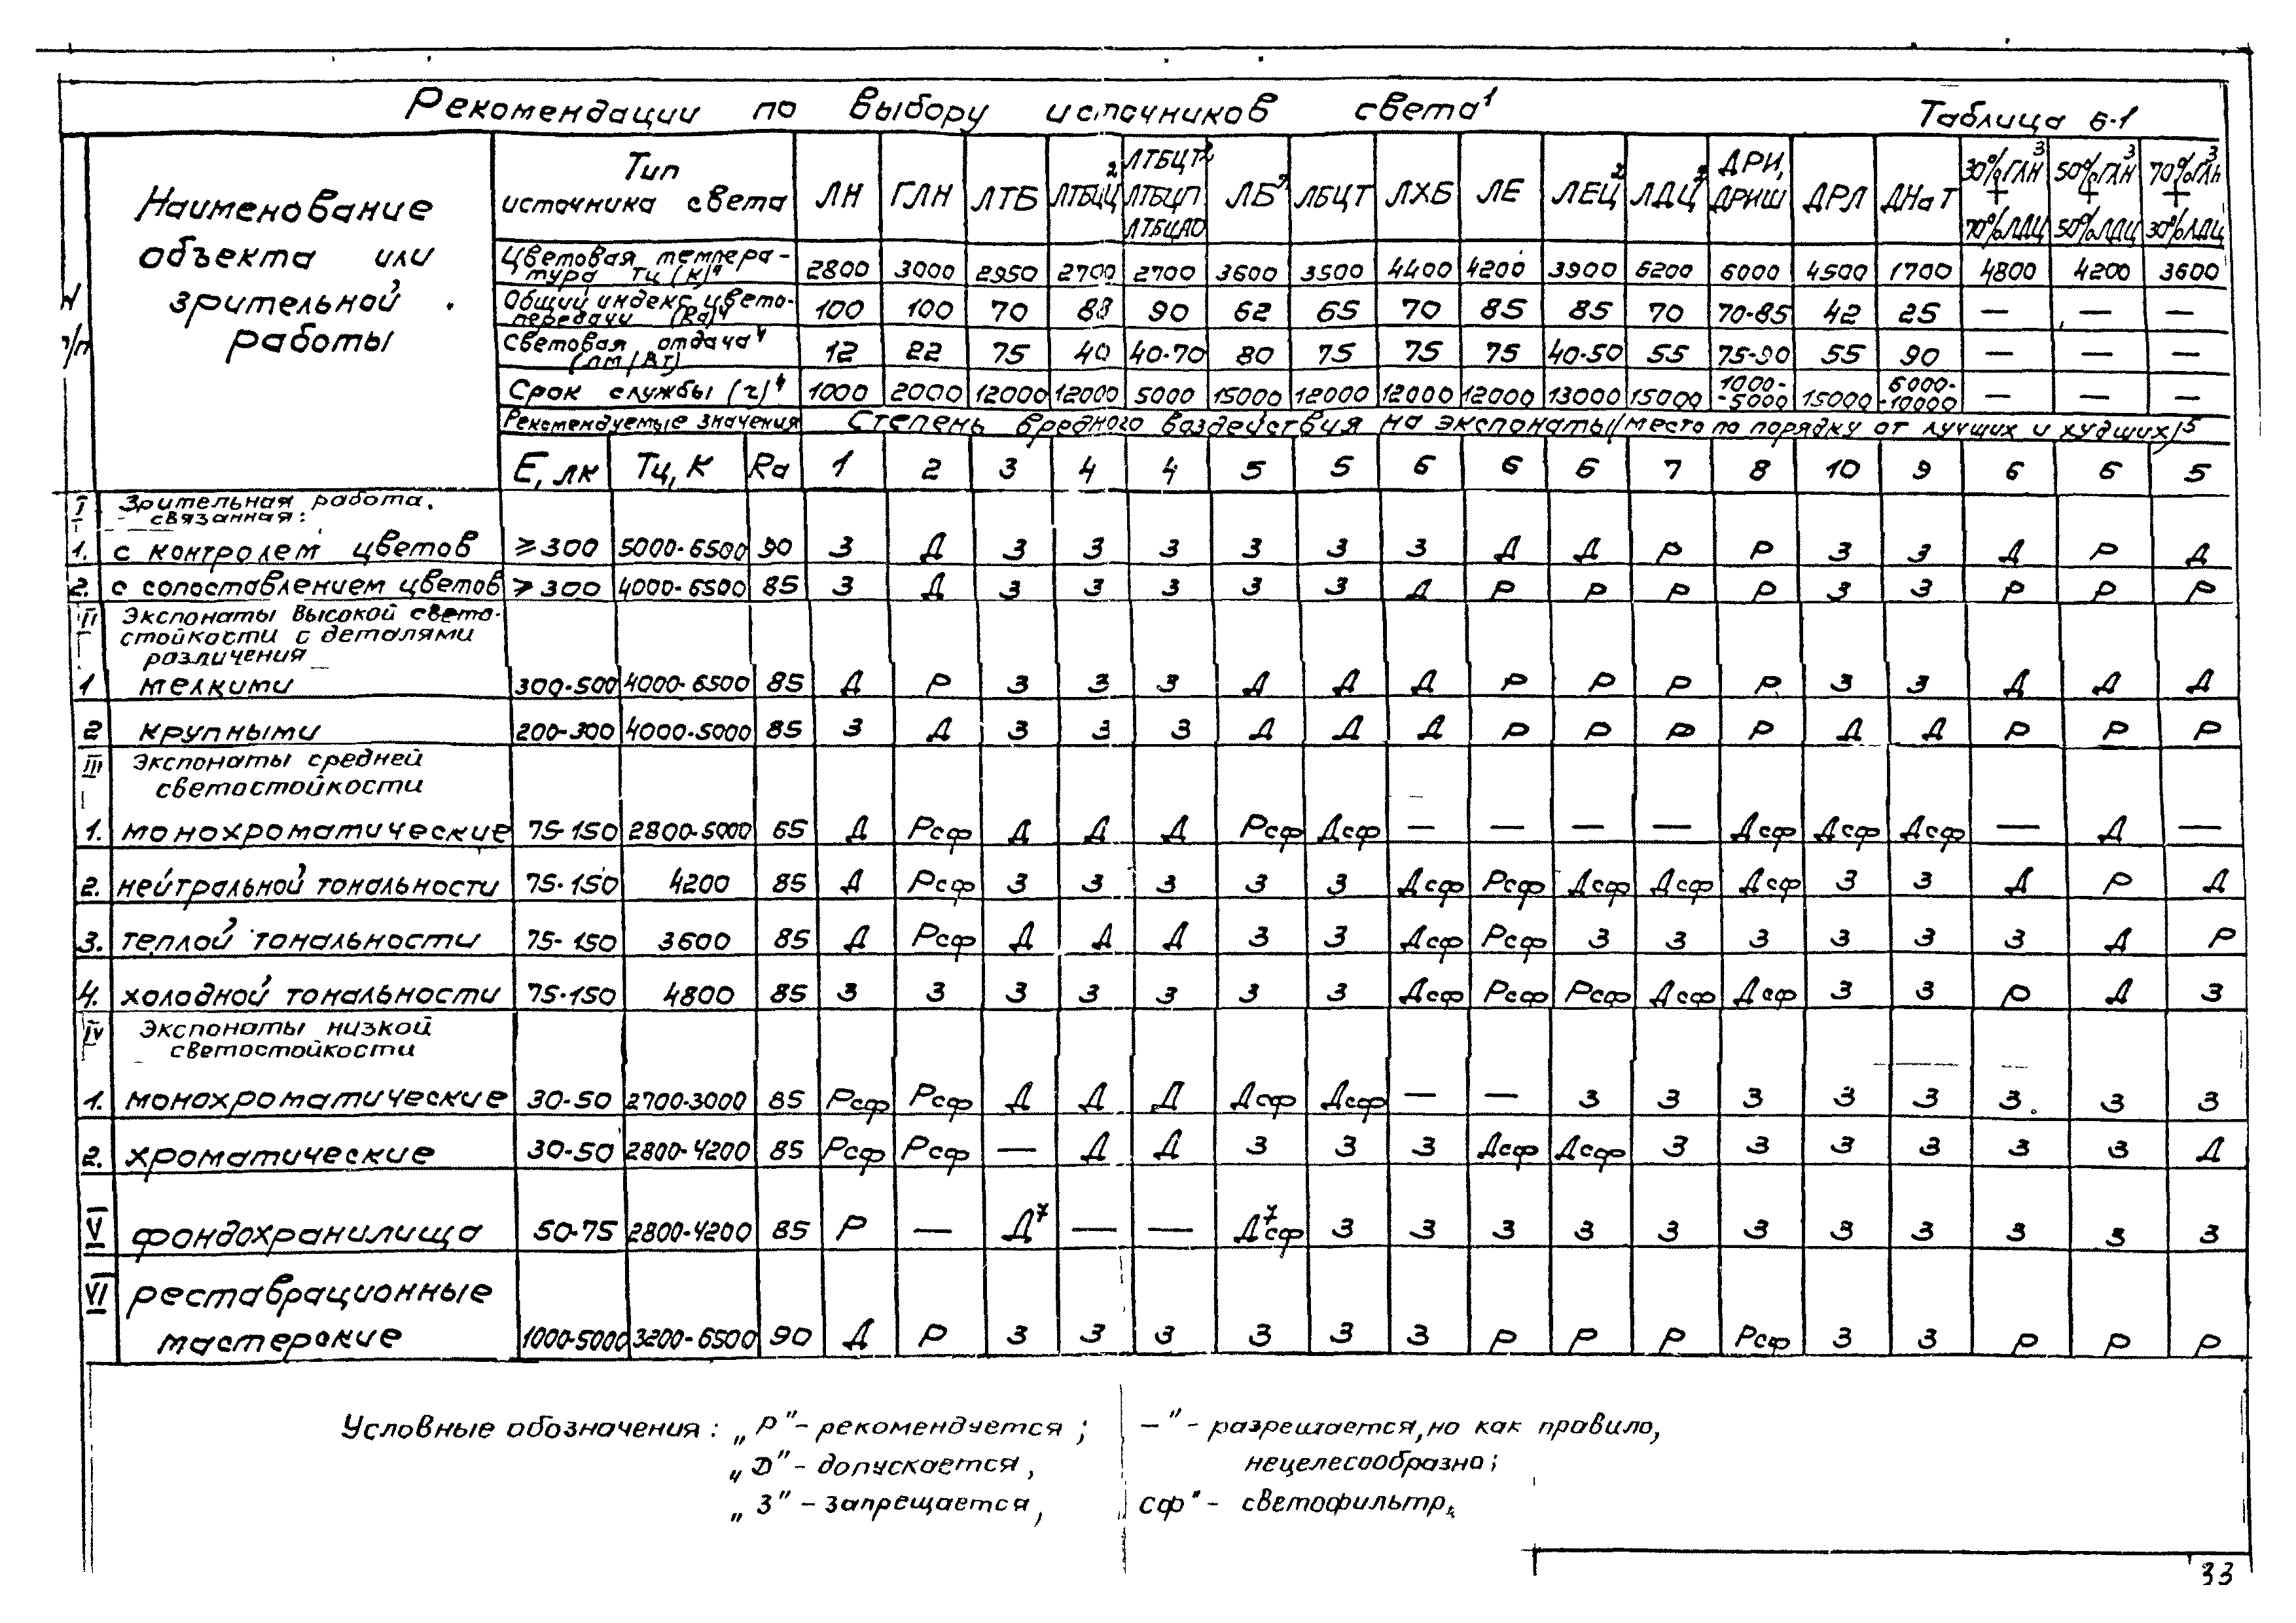 Рекомендации по выбору источников света¹
Таблица 6-1
N п/п
Наименование объекта или зрительной работы
Тип источника света ЛН ГЛН ЛТБ ЛТБЦЦ² ЛТБЦТ² ЛТБЦП ЛТБЦАО ЛБ² ЛБЦТ ЛХБ ЛЕ ЛЕЦ² ЛДЦ² ДРИ, ДРИШ ДРЛ ДНаТ 30%ГЛН³ + 70%ЛДЦ 50%ГЛН³ + 50%ЛДЦ 70%ГЛН³ + 30%ЛДЦ
Цветовая темпера-
тура Тц (К)⁴ 2800 3000 2950 2700 2700 3600 3500 4400 4200 3900 6200 6000 4500 1700 4800 4200 3600
Общий индекс цвето-
передачи (Ra)⁴ 100 100 70 83 90 62 65 70 85 85 70 70-85 42 25 — — —
Световая отдача⁴
(лм/Вт) 12 22 75 40 40-70 80 75 75 75 40-50 55 75-90 55 90 — — —
Срок службы (ч)⁴ 1000 2000 12000 12000 5000 15000 12000 12000 12000 13000 15000 1000-5000 15000 6000-10000 — — —
Рекомендуемые значения Степень вредного воздействия на экспонаты (место по порядку от лучших и худших)⁵
Е, лк Тц, К Ra 1 2 3 4 4 5 5 6 6 6 7 8 10 9 6 6 5
I Зрительная работа,
связанная:
1. с контролем цветов ≥300 5000-6500 90 З Д З З З З З З Д Д Р Р З З Д Р Д
2. с сопоставлением цветов ≥300 4000-6500 85 З Д З З З З З Д Р Р Р Р З З Р Р Р
II Экспонаты высокой свето-
стойкости с деталями
различения
1 мелкими 300-500 4000-6500 85 Д Р З З З Д Д Д Р Р Р Р З З Д Д Д
2 крупными 200-300 4000-5000 85 З Д З З З Д Д Д Р Р Р Р Д Д Р Р Р
III Экспонаты средней
светостойкости
1. монохроматические 75-150 2800-5000 65 Д Рсф Д Д Д Рсф Дсф — — — — Дсф Дсф Дсф — Д —
2. нейтральной тональности 75-150 4200 85 Д Рсф З З З З З Дсф Рсф Дсф Дсф Дсф З З Д Р Д
3. теплой тональности 75-150 3600 85 Д Рсф Д Д Д З З Дсф Рсф З З З З З З Д Р
4. холодной тональности 75-150 4800 85 З З З З З З З Дсф Рсф Рсф Дсф Дсф З З Р Д З
IV Экспонаты низкой
светостойкости
1. монохроматические 30-50 2700-3000 85 Рсф Рсф Д Д Д Дсф Дсф — — З З З З З З З З
2. хроматические 30-50 2800-4200 85 Рсф Рсф — Д Д З З З Дсф Дсф З З З З З З Д
V фондохранилища 50-75 2800-4200 85 Р — Д⁷ — — Д⁷сф З З З З З З З З З З З
VI реставрационные
мастерские 1000-5000 3200-6500 90 Д Р З З З З З З Р Р Р Рсф З З Р Р Р
Условные обозначения: „Р" - рекомендуется; —" - разрешается, но как правило,
„Д" - допускается, нецелесообразно;
„З" - запрещается, сф" - светофильтр.
33